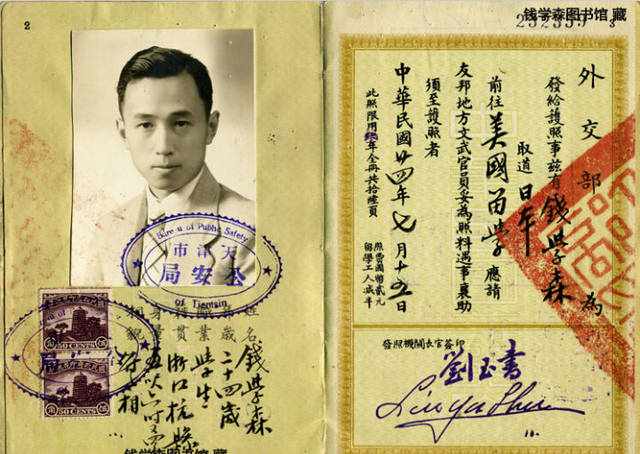 钱学森图书馆 藏
2
市津天
局安公
Bureau of Public Safety
of Tientsin
50 CENTS
50 CENTS
姓名 錢學森
年歲 二十四歲
職業 學生
籍貫 浙江杭縣
身量 五呎六吋
相貌 附相
钱学森图书馆 藏
3
外交部 為
發給護照事茲有錢學森
取道日本
前往美國留學應請
友邦地方文武官員妥為照料遇事襄助
須至護照者
中華民國廿四年七月十五日
照費國幣貳元
留學工人減半
此照限用 年全冊共拾陸頁
發照機關長官簽印
劉玉書